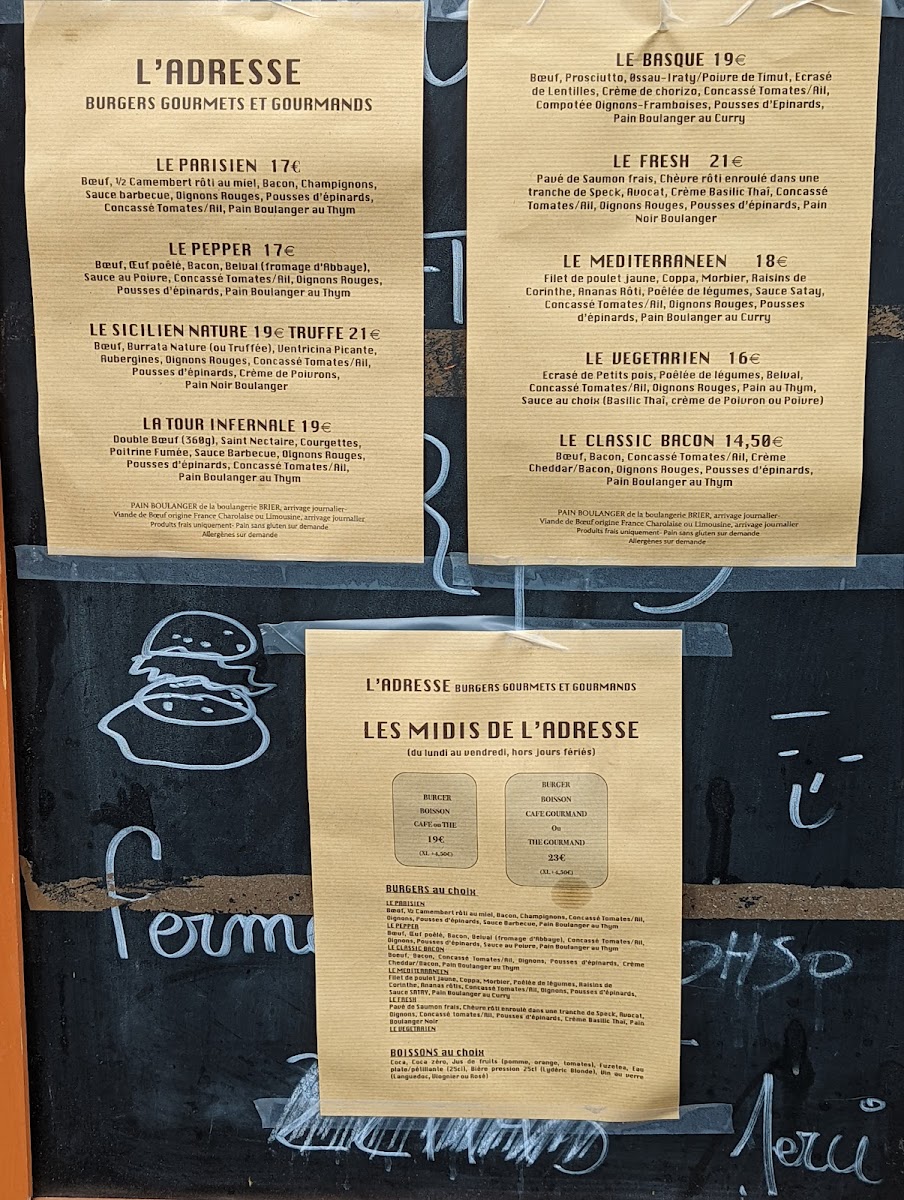 L'ADRESSE
BURGERS GOURMETS ET GOURMANDS
LE PARISIEN 17€
Bœuf, ½ Camembert rôti au miel, Bacon, Champignons,
Sauce barbecue, Oignons Rouges, Pousses d'épinards,
Concassé Tomates/Ail, Pain Boulanger au Thym
LE PEPPER 17€
Bœuf, Œuf poêlé, Bacon, Belval (fromage d'Abbaye),
Sauce au Poivre, Concassé Tomates/Ail, Oignons Rouges,
Pousses d'épinards, Pain Boulanger au Thym
LE SICILIEN NATURE 19€ TRUFFE 21€
Bœuf, Burrata Nature (ou Truffée), Ventricina Picante,
Aubergines, Oignons Rouges, Concassé Tomates/Ail,
Pousses d'épinards, Crème de Poivrons,
Pain Noir Boulanger
LA TOUR INFERNALE 19€
Double Bœuf (360g), Saint Nectaire, Courgettes,
Poitrine Fumée, Sauce Barbecue, Oignons Rouges,
Pousses d'épinards, Concassé Tomates/Ail,
Pain Boulanger au Thym
PAIN BOULANGER de la boulangerie BRIER, arrivage journalier-
Viande de Bœuf origine France Charolaise ou Limousine, arrivage journalier
Produits frais uniquement- Pain sans gluten sur demande
Allergènes sur demande
LE BASQUE 19€
Bœuf, Prosciutto, Øssau-Iraty/Poivre de Timut, Ecrasé
de Lentilles, Crème de chorizo, Concassé Tomates/Ail,
Compotée Oignons-Framboises, Pousses d'Epinards,
Pain Boulanger au Curry
LE FRESH 21€
Pavé de Saumon frais, Chèvre rôti enroulé dans une
tranche de Speck, Avocat, Crème Basilic Thaï, Concassé
Tomates/Ail, Oignons Rouges, Pousses d'épinards, Pain
Noir Boulanger
LE MEDITERRANEEN 18€
Filet de poulet jaune, Coppa, Morbier, Raisins de
Corinthe, Ananas Rôti, Poêlée de légumes, Sauce Satay,
Concassé Tomates/Ail, Oignons Rouges, Pousses
d'épinards, Pain Boulanger au Curry
LE VEGETARIEN 16€
Ecrasé de Petits pois, Poêlée de légumes, Belval,
Concassé Tomates/Ail, Oignons Rouges, Pain au Thym,
Sauce au choix (Basilic Thaï, crème de Poivron ou Poivre)
LE CLASSIC BACON 14,50€
Bœuf, Bacon, Concassé Tomates/Ail, Crème
Cheddar/Bacon, Oignons Rouges, Pousses d'épinards,
Pain Boulanger au Thym
PAIN BOULANGER de la boulangerie BRIER, arrivage journalier-
Viande de Bœuf origine France Charolaise ou Limousine, arrivage journalier
Produits frais uniquement- Pain sans gluten sur demande
Allergènes sur demande
L'ADRESSE BURGERS GOURMETS ET GOURMANDS
LES MIDIS DE L'ADRESSE
(du lundi au vendredi, hors jours fériés)
BURGER
BOISSON
CAFE ou THE
19€
(XL +4,50€)
BURGER
BOISSON
CAFE GOURMAND
Ou
THE GOURMAND
23€
(XL +4,50€)
BURGERS au choix
LE PARISIEN
Bœuf, ½ Camembert rôti au miel, Bacon, Champignons, Concassé Tomates/Ail,
Oignons, Pousses d'épinards, Sauce Barbecue, Pain Boulanger au Thym
LE PEPPER
Bœuf, Œuf poêlé, Bacon, Belval (fromage d'Abbaye), Concassé Tomates/Ail,
Oignons, Pousses d'épinards, Sauce au Poivre, Pain Boulanger au Thym
LE CLASSIC BACON
Boeuf, Bacon, Concassé Tomates/Ail, Oignons, Pousses d'épinards, Crème
Cheddar/Bacon, Pain Boulanger au Thym
LE MEDITERRANEEN
Filet de poulet jaune, Coppa, Morbier, Poêlée de légumes, Raisins de
Corinthe, Ananas rôtis, Concassé Tomates/Ail, Oignons, Pousses d'épinards,
Sauce SATAY, Pain Boulanger au Curry
LE FRESH
Pavé de Saumon frais, Chèvre rôti enroulé dans une tranche de Speck, Avocat,
Oignons, Concassé tomates/Ail, Pousses d'épinards, Crème Basilic Thaï, Pain
Boulanger Noir
LE VEGETARIEN
BOISSONS au choix
Coca, Coca zéro, Jus de fruits (pomme, orange, tomates), Fuzetea, Eau
plate/pétillante (25cl), Bière pression 25cl (Lydéric Blonde), Vin au verre
(Languedoc, Viognier ou Rosé)
Merci